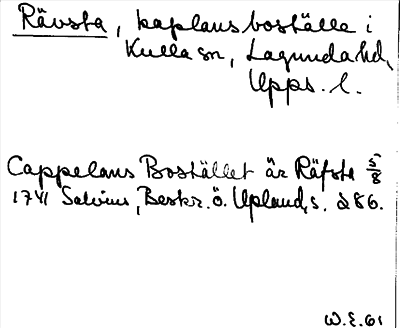 Rävsta, kaplansboställe i
Kulla sn, Lagunda hd,
Upps. l.
Cappelans Bostället är Räfsta 5/8
1741 Salvius, Beskr. ö. Upland, s. 286.
W.E. 61